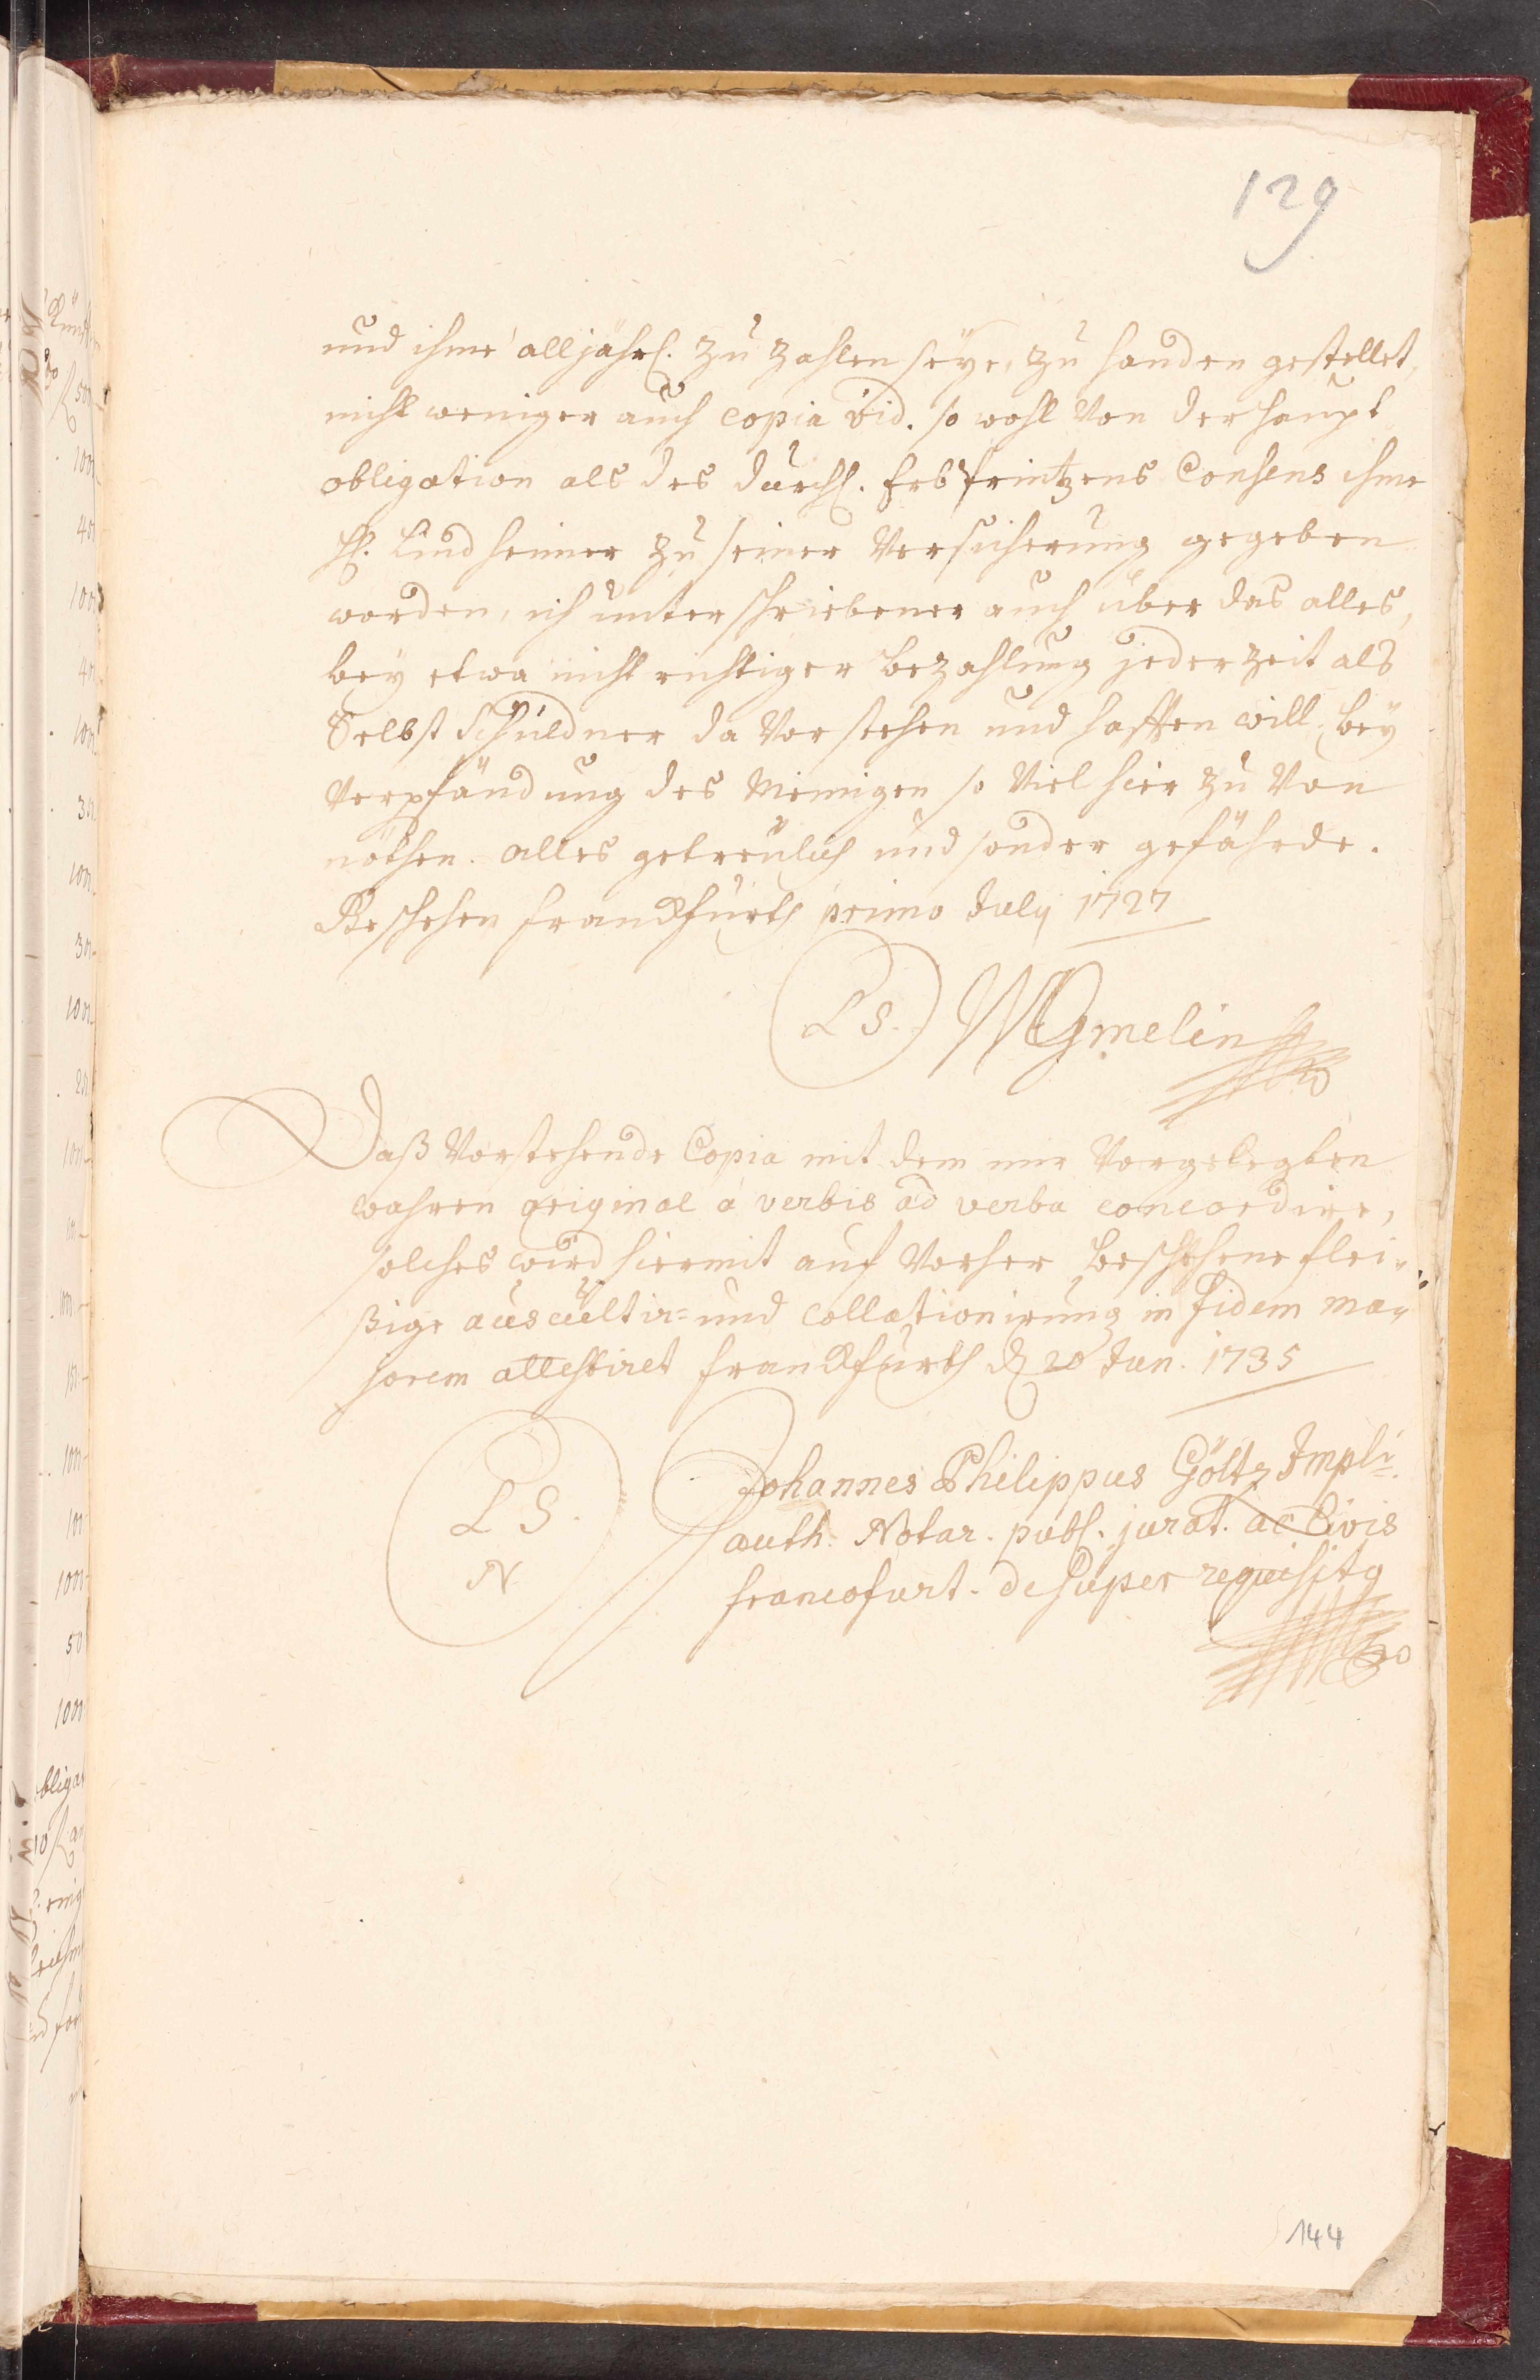 129
und ihme alljährl. zu zahlen seye, zu handen gestellet,
nicht weniger auch copia vid. so wohl von der haupt
obligation als des durchl. Erbprintzens Consens ihme
H. Lindheimer zu seiner Versicherung gegeben
worden, ich unterschriebener auch über das alles,
bey etwa nicht richtiger bezahlung jederzeit als
Selbst Schuldner da vor stehen und hafften will, bey
Verpfändung des Meinigen so viel hier zu von
nöthen. alles getreulich und sonder gefährde.
Geschehen franckfurth primo July 1727
L S. Gmelin
Daß Vorstehende Copia mit dem mir Vorgelegten
wahren original á verbis ad verba concordire,
solches wird hiermit auf vorher beschehene flei-
ßige auscultir= und collationirung in fidem ma-
jorem attestiret franckfurth d 20 Jan. 1735
L S.
N
Johannes Philippus Göltz Impli.
auth. Notar. publ. jurat. ac Civis
francofurt. desuper requisitg
144